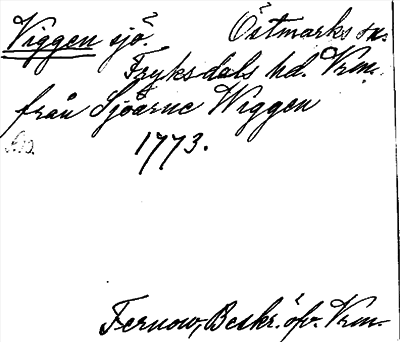 Viggen sjö. Östmarks sn.
Fryksdals hd. Vrm.
från Sjöarne Wiggen
1773.
Fernow, Beskr. öfv. Vrm.